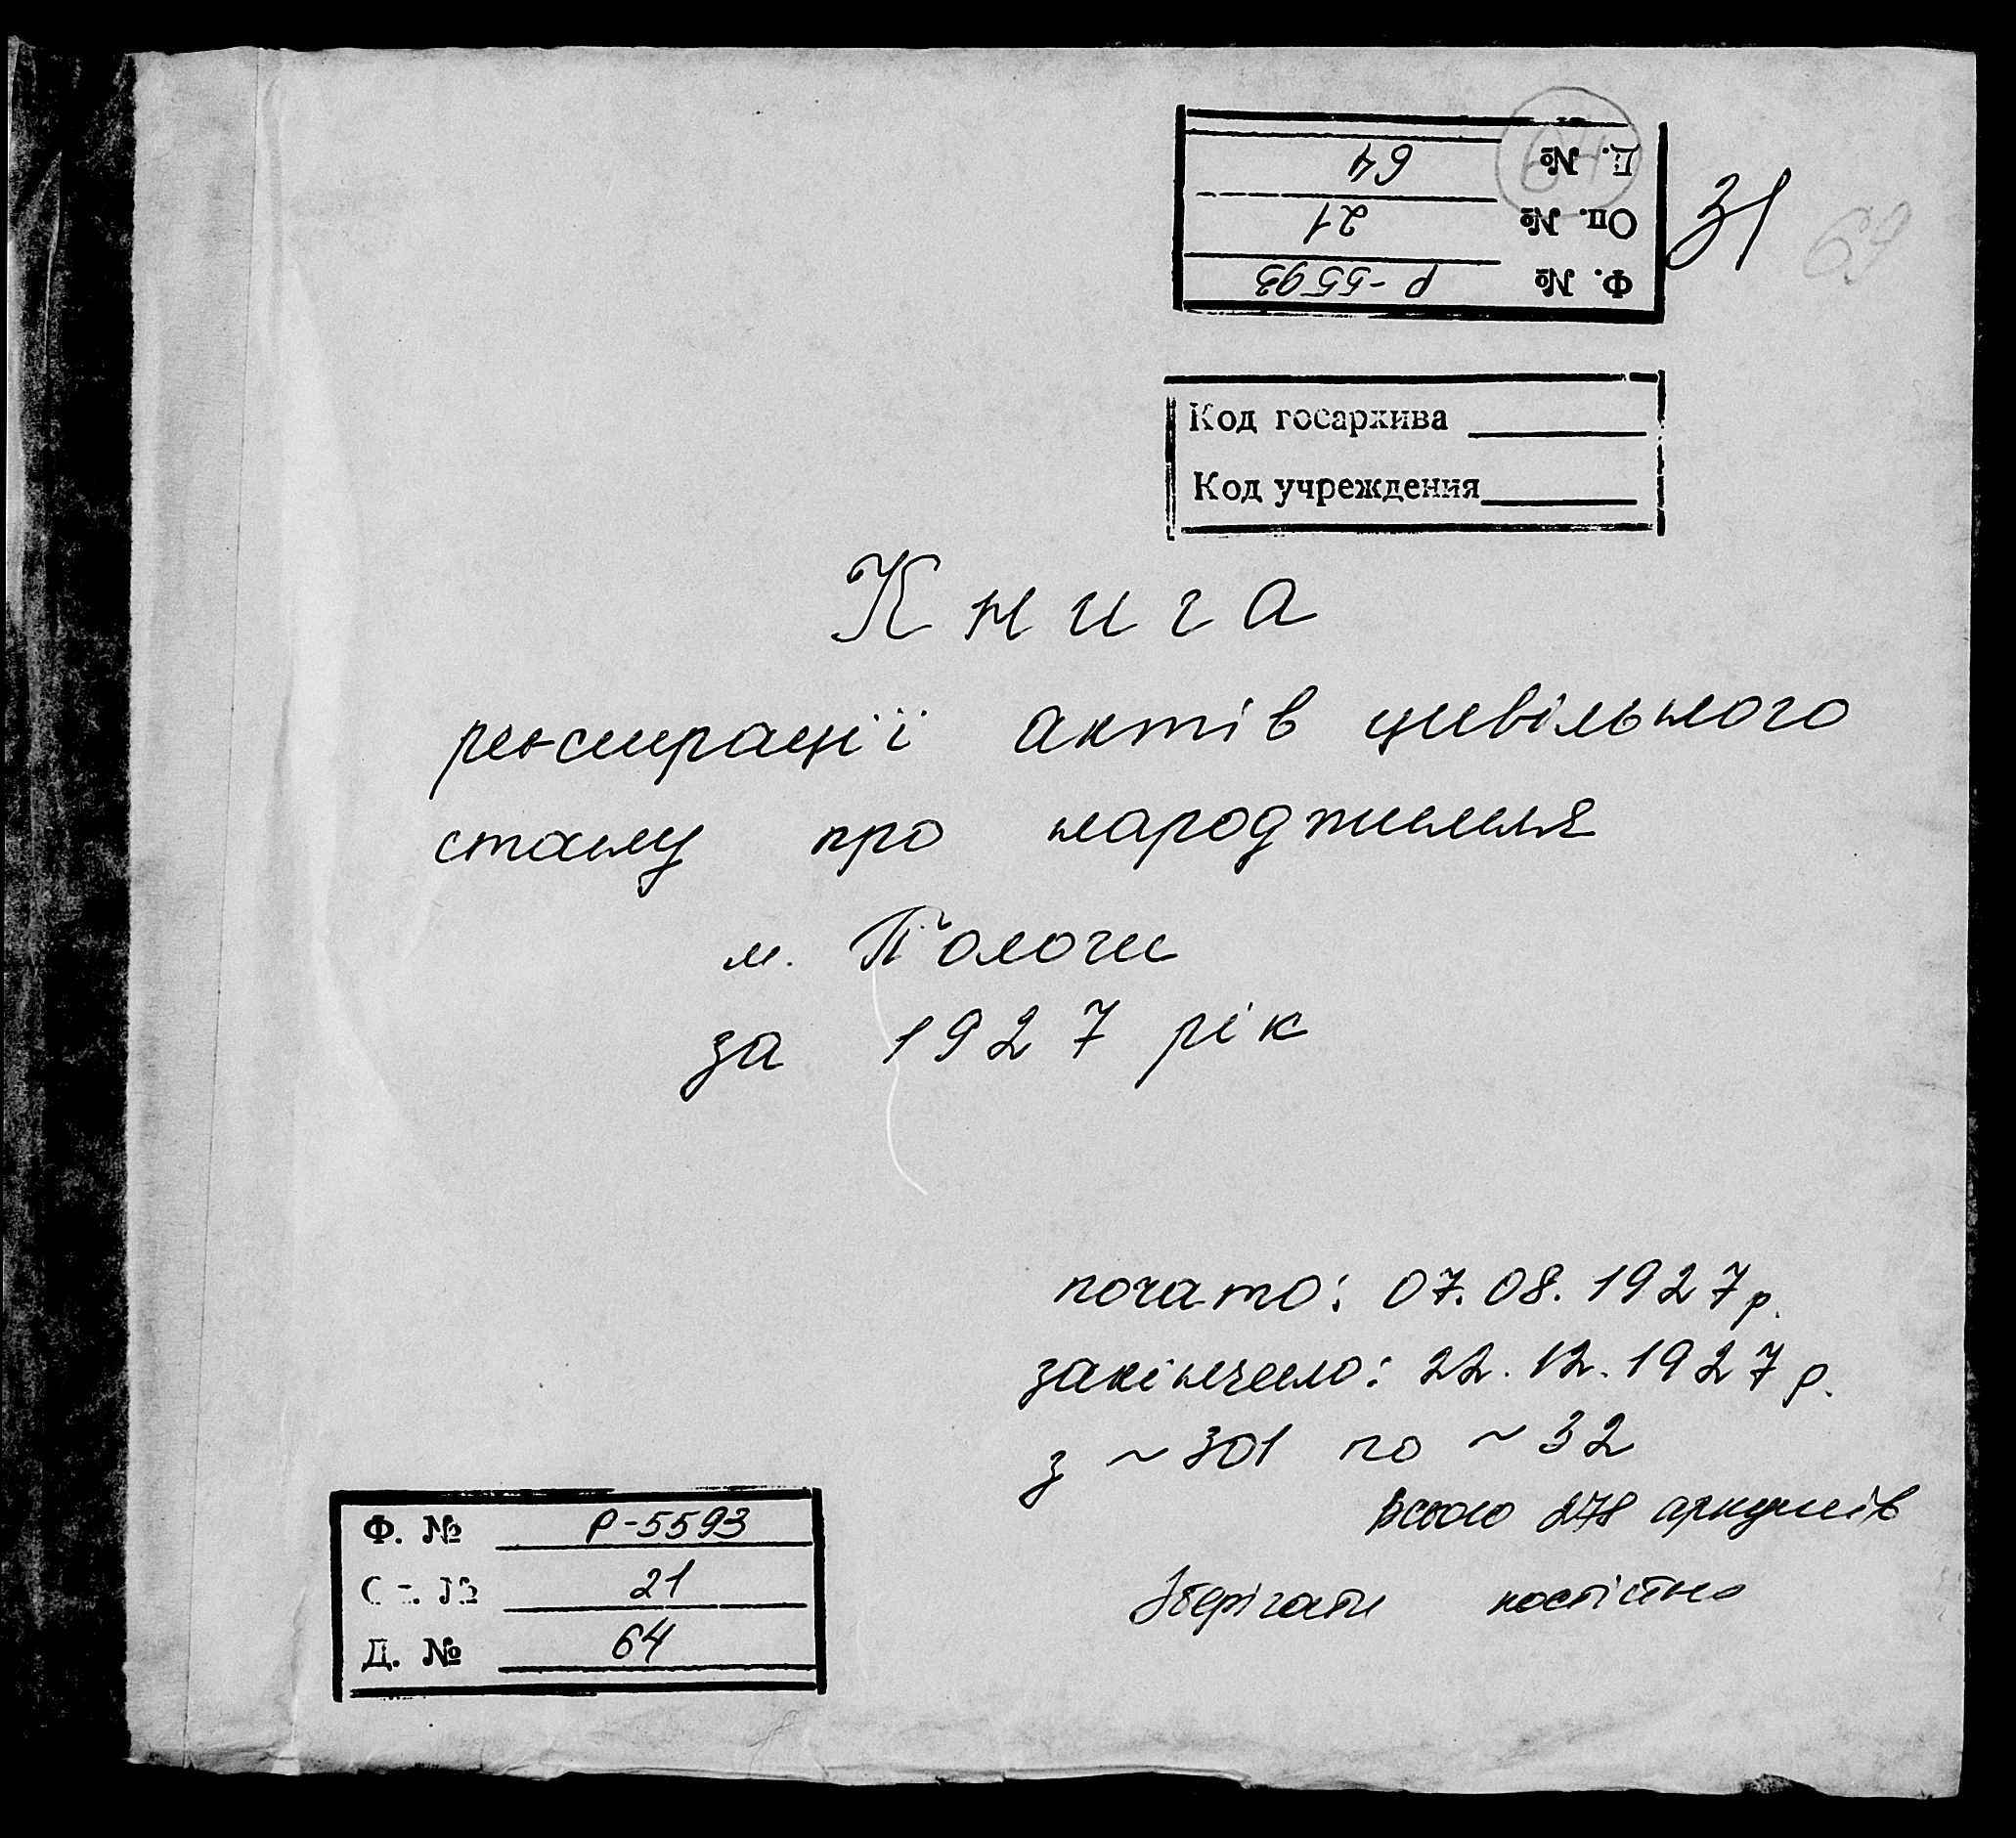 Д. № 64
Оп. № 21
Ф. № Р-5593
64
31
Код госархива
Код учреждения
Книга
реєстрації актів цивільного
стану про народження
м. Пологи
за 1927 рік
почато: 07.08.1927 р.
закінчено: 22.12.1927 р.
з ~ 301 по ~ 32
всього 278 аркушів
Зберігати постійно
Ф. № Р-5593
Оп. № 21
Д. № 64